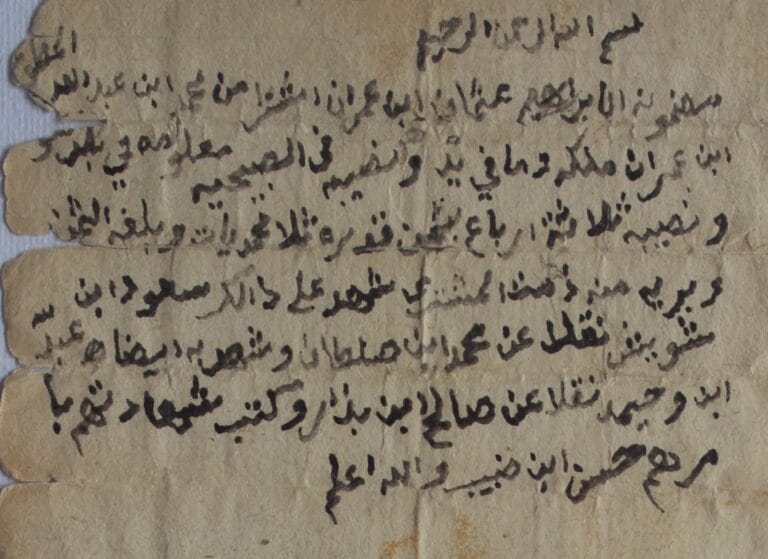 بسم الله الرحمن الرحيم
مضمونه ان ابراهيم عثمان ابن عمران اشترا من محمد ابن عبدالله
ابن عمران ملكه وما في يده ونصيبه في الصبيحيه معلومه في
ونصيبه ثلاثة ارباع بثمن قدره ثلا محمديات وبلغه الثمن
وبريه منه ذمت المشتري شهد على ذالك سعود ابن
شويش نقلا عن محمد ابن صلطان وشهد به ايضاه عبدالله
ابن وحيمد نقلا عن صالح ابن بدر وكتب شهادتهم با
مرهم حسن ابن والله اعلم